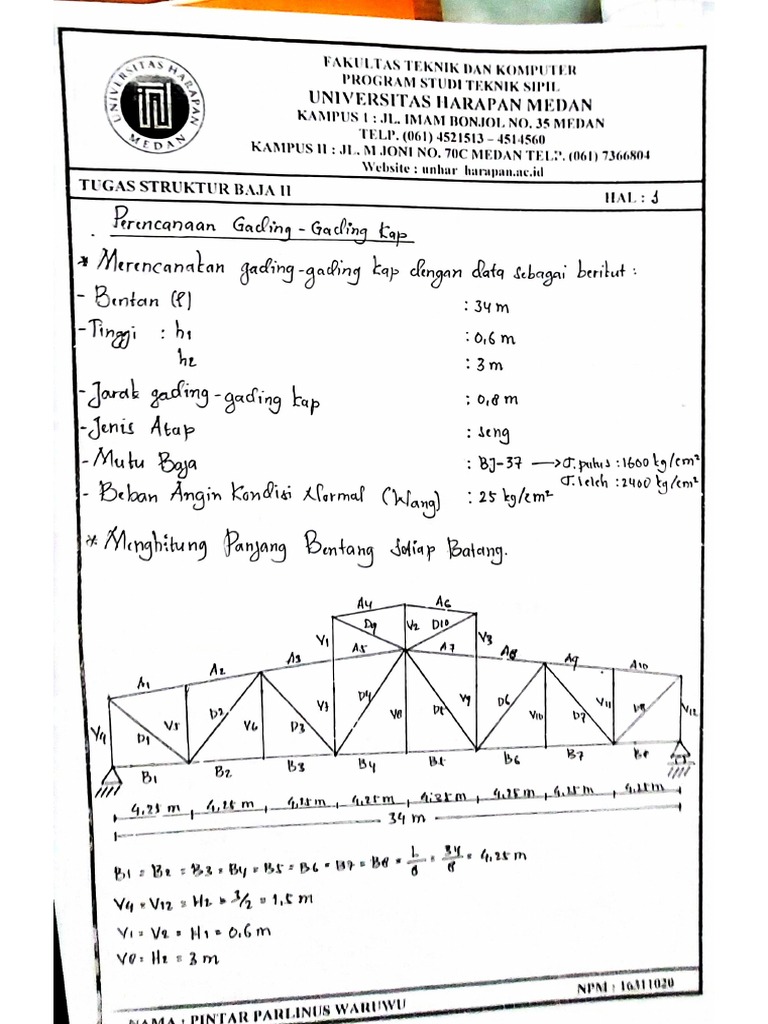 UNIVERSITAS HARAPAN
MEDAN
FAKULTAS TEKNIK DAN KOMPUTER
PROGRAM STUDI TEKNIK SIPIL
UNIVERSITAS HARAPAN MEDAN
KAMPUS I : JL. IMAM BONJOL NO. 35 MEDAN
TELP. (061) 4521513 – 4514560
KAMPUS II : JL. M JONI NO. 70C MEDAN TELP. (061) 7366804
Website : unhar harapan.ac.id
TUGAS STRUKTUR BAJA II HAL : 1
Perencanaan Gading-Gading Kap
* Merencanakan gading-gading kap dengan data sebagai berikut :
- Bentan (l) : 34 m
- Tinggi : h1 : 0,6 m
h2 : 3 m
- Jarak gading-gading kap : 0,8 m
- Jenis Atap : seng
- Mutu Baja : BJ-37 → σ. putus : 1600 kg/cm²
σ. leleh : 2400 kg/cm²
- Beban Angin Kondisi Normal (Wang) : 25 kg/cm²
* Menghitung Panjang Bentang Setiap Batang.
A4 A6
V1 D9 V2 D10 V3
A1 A2 A3 A5 A7 A8 A9 A10
V4 D1 V5 D2 V6 D3 V7 D4 V8 D5 V9 D6 V10 D7 V11 D8 V12
B1 B2 B3 B4 B5 B6 B7 B8
4,25 m 4,25 m 4,25 m 4,25 m 4,25 m 4,25 m 4,25 m 4,25 m
34 m
B1 = B2 = B3 = B4 = B5 = B6 = B7 = B8 = L/8 = 34/8 = 4,25 m
V4 = V12 = H2 = 3/2 = 1,5 m
V1 = V2 = H1 = 0,6 m
V8 = H2 = 3 m
NAMA : PINTAR PARLINUS WARUWU NPM : 16311020